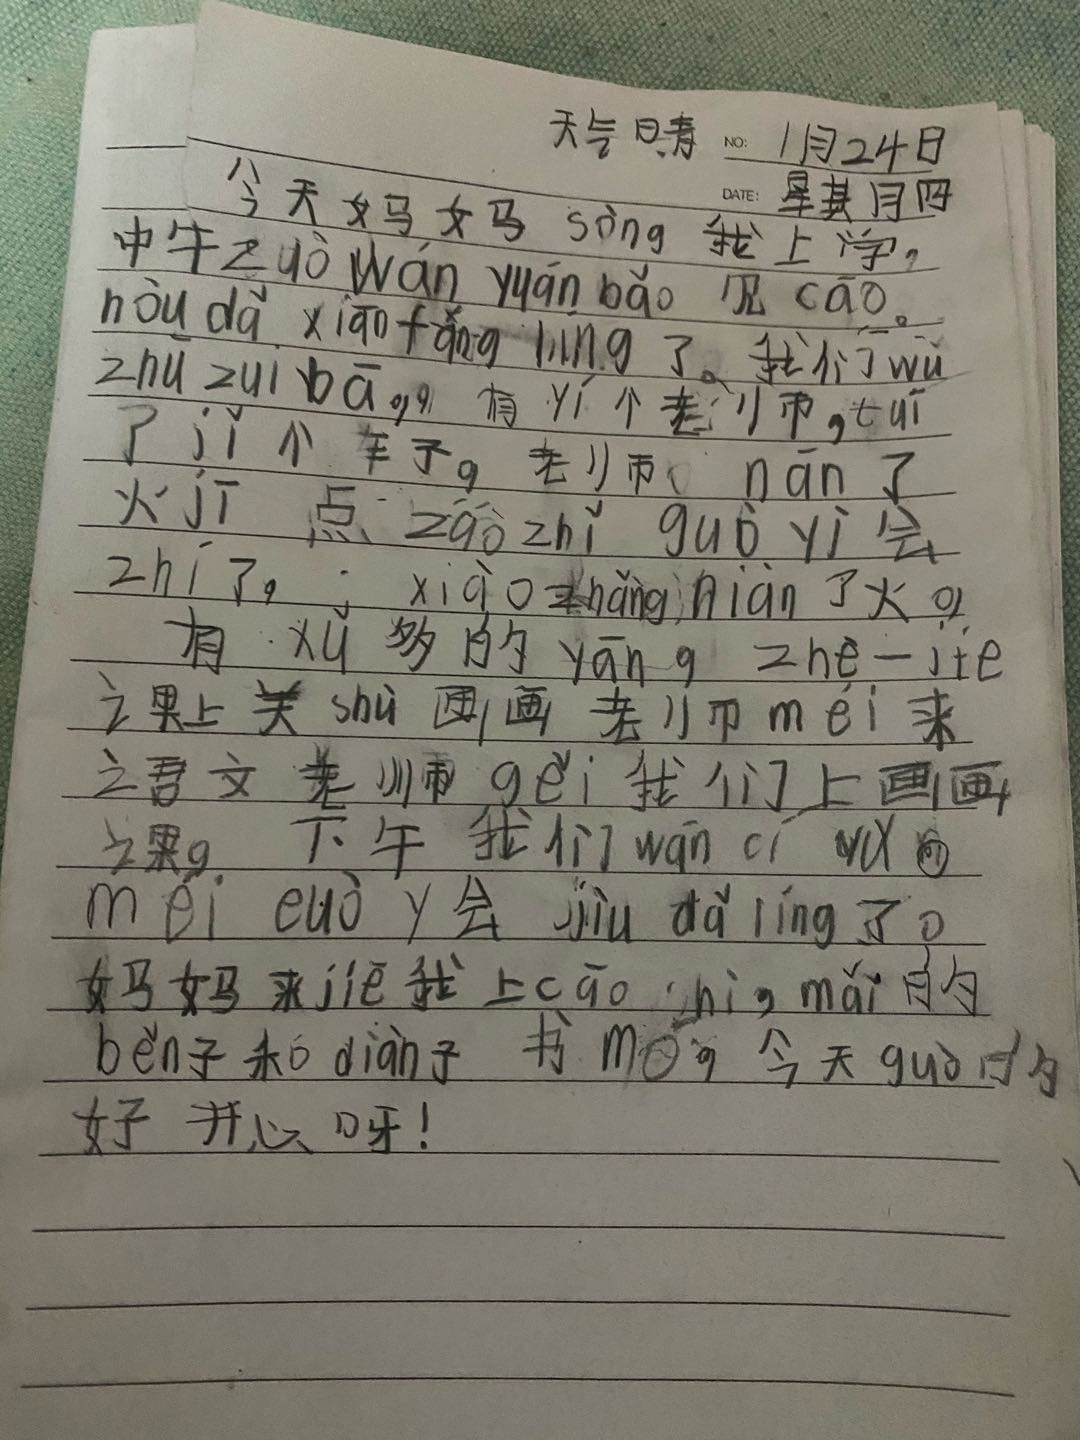 天气晴 NO: 1月24日
DATE: 星其月四
今天妈妈 sòng 我上学,
中午 zuò wán yuán bǎo 见 cāo。
hòu dǎ xiāo fáng líng 了。我们 wǔ
zhù zuǐ bā, 有 yí 个老师, tuī
了 jǐ 个车子。老师 nān 了
火 jī 点 zǎo zhǐ guò yì 会
zhí 了, xiào zhǎng niàn 了火。
有 xǔ 多的 yāng zhè-jiē
课上关 shù 画画老师 méi 来
语文老师 gěi 我们上画画
课。下午我们 wān cí
méi euò y 会 jiù dǎ líng 了。
妈妈来 jiē 我上 cāo shì, mǎi 的
běn 子和 diàn 子 书 今天 guò 的
好开心呀!